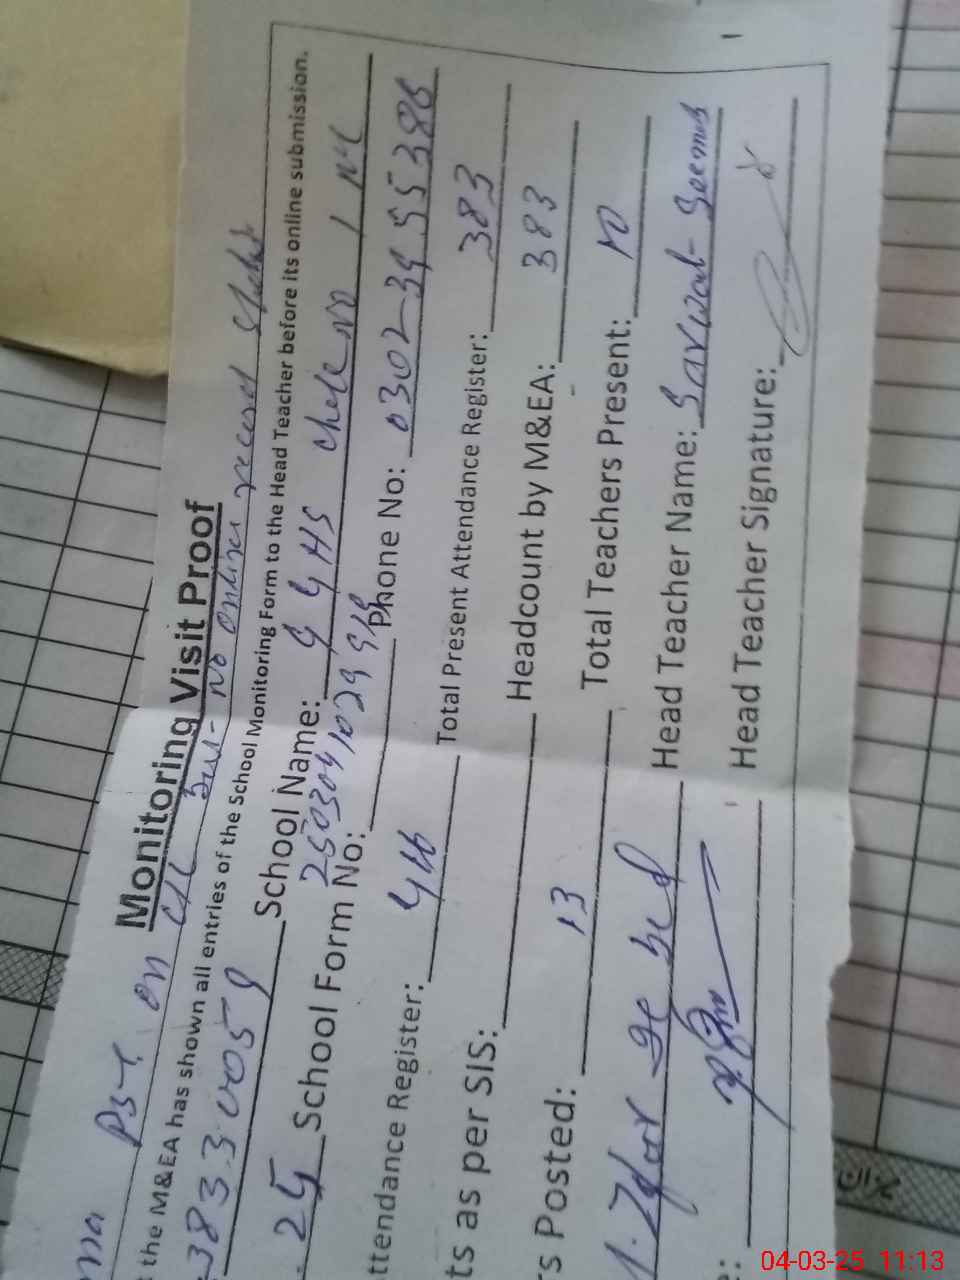 on CL but- No online record
Monitoring Visit Proof
the M&EA has shown all entries of the School Monitoring Form to the Head Teacher before its online submission.
38330059 School Name: GGHS Chak No 1 NL
25 School Form No: 250304102991 Phone No: 0302-3955386
ttendance Register: 416 Total Present Attendance Register: 383
ts as per SIS: Headcount by M&EA: 383
rs Posted: 13 Total Teachers Present: 10
Head Teacher Name: Sarwat-
Head Teacher Signature:
04-03-25 11:13